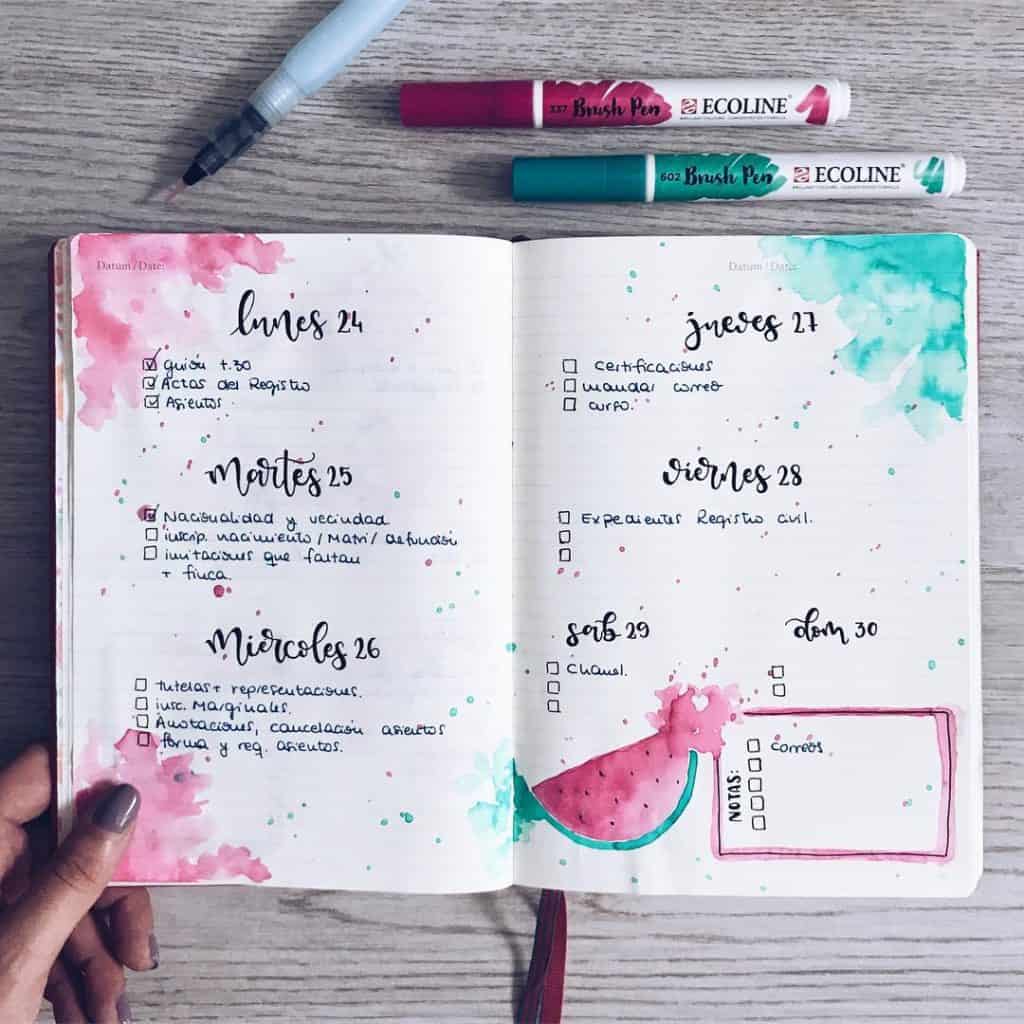 337 Brush Pen ECOLINE
602 Brush Pen ECOLINE
Datum / Date:
lunes 24
guión t.30
Actas del Registro
Asientos.
Martes 25
Nacionalidad y vecindad
inscrip. nacimiento / Matri / defunción
imitaciones que faltan
+ finca.
Miércoles 26
tutelas + representaciones.
insc. Marginales.
Anotaciones, cancelación asientos
forma y req. asientos.
Datum / Date:
jueves 27
certificaciones
mandar correo
curso.
viernes 28
Expedientes Registro civil.
sab 29
Chanel.
dom 30
NOTAS:
correos